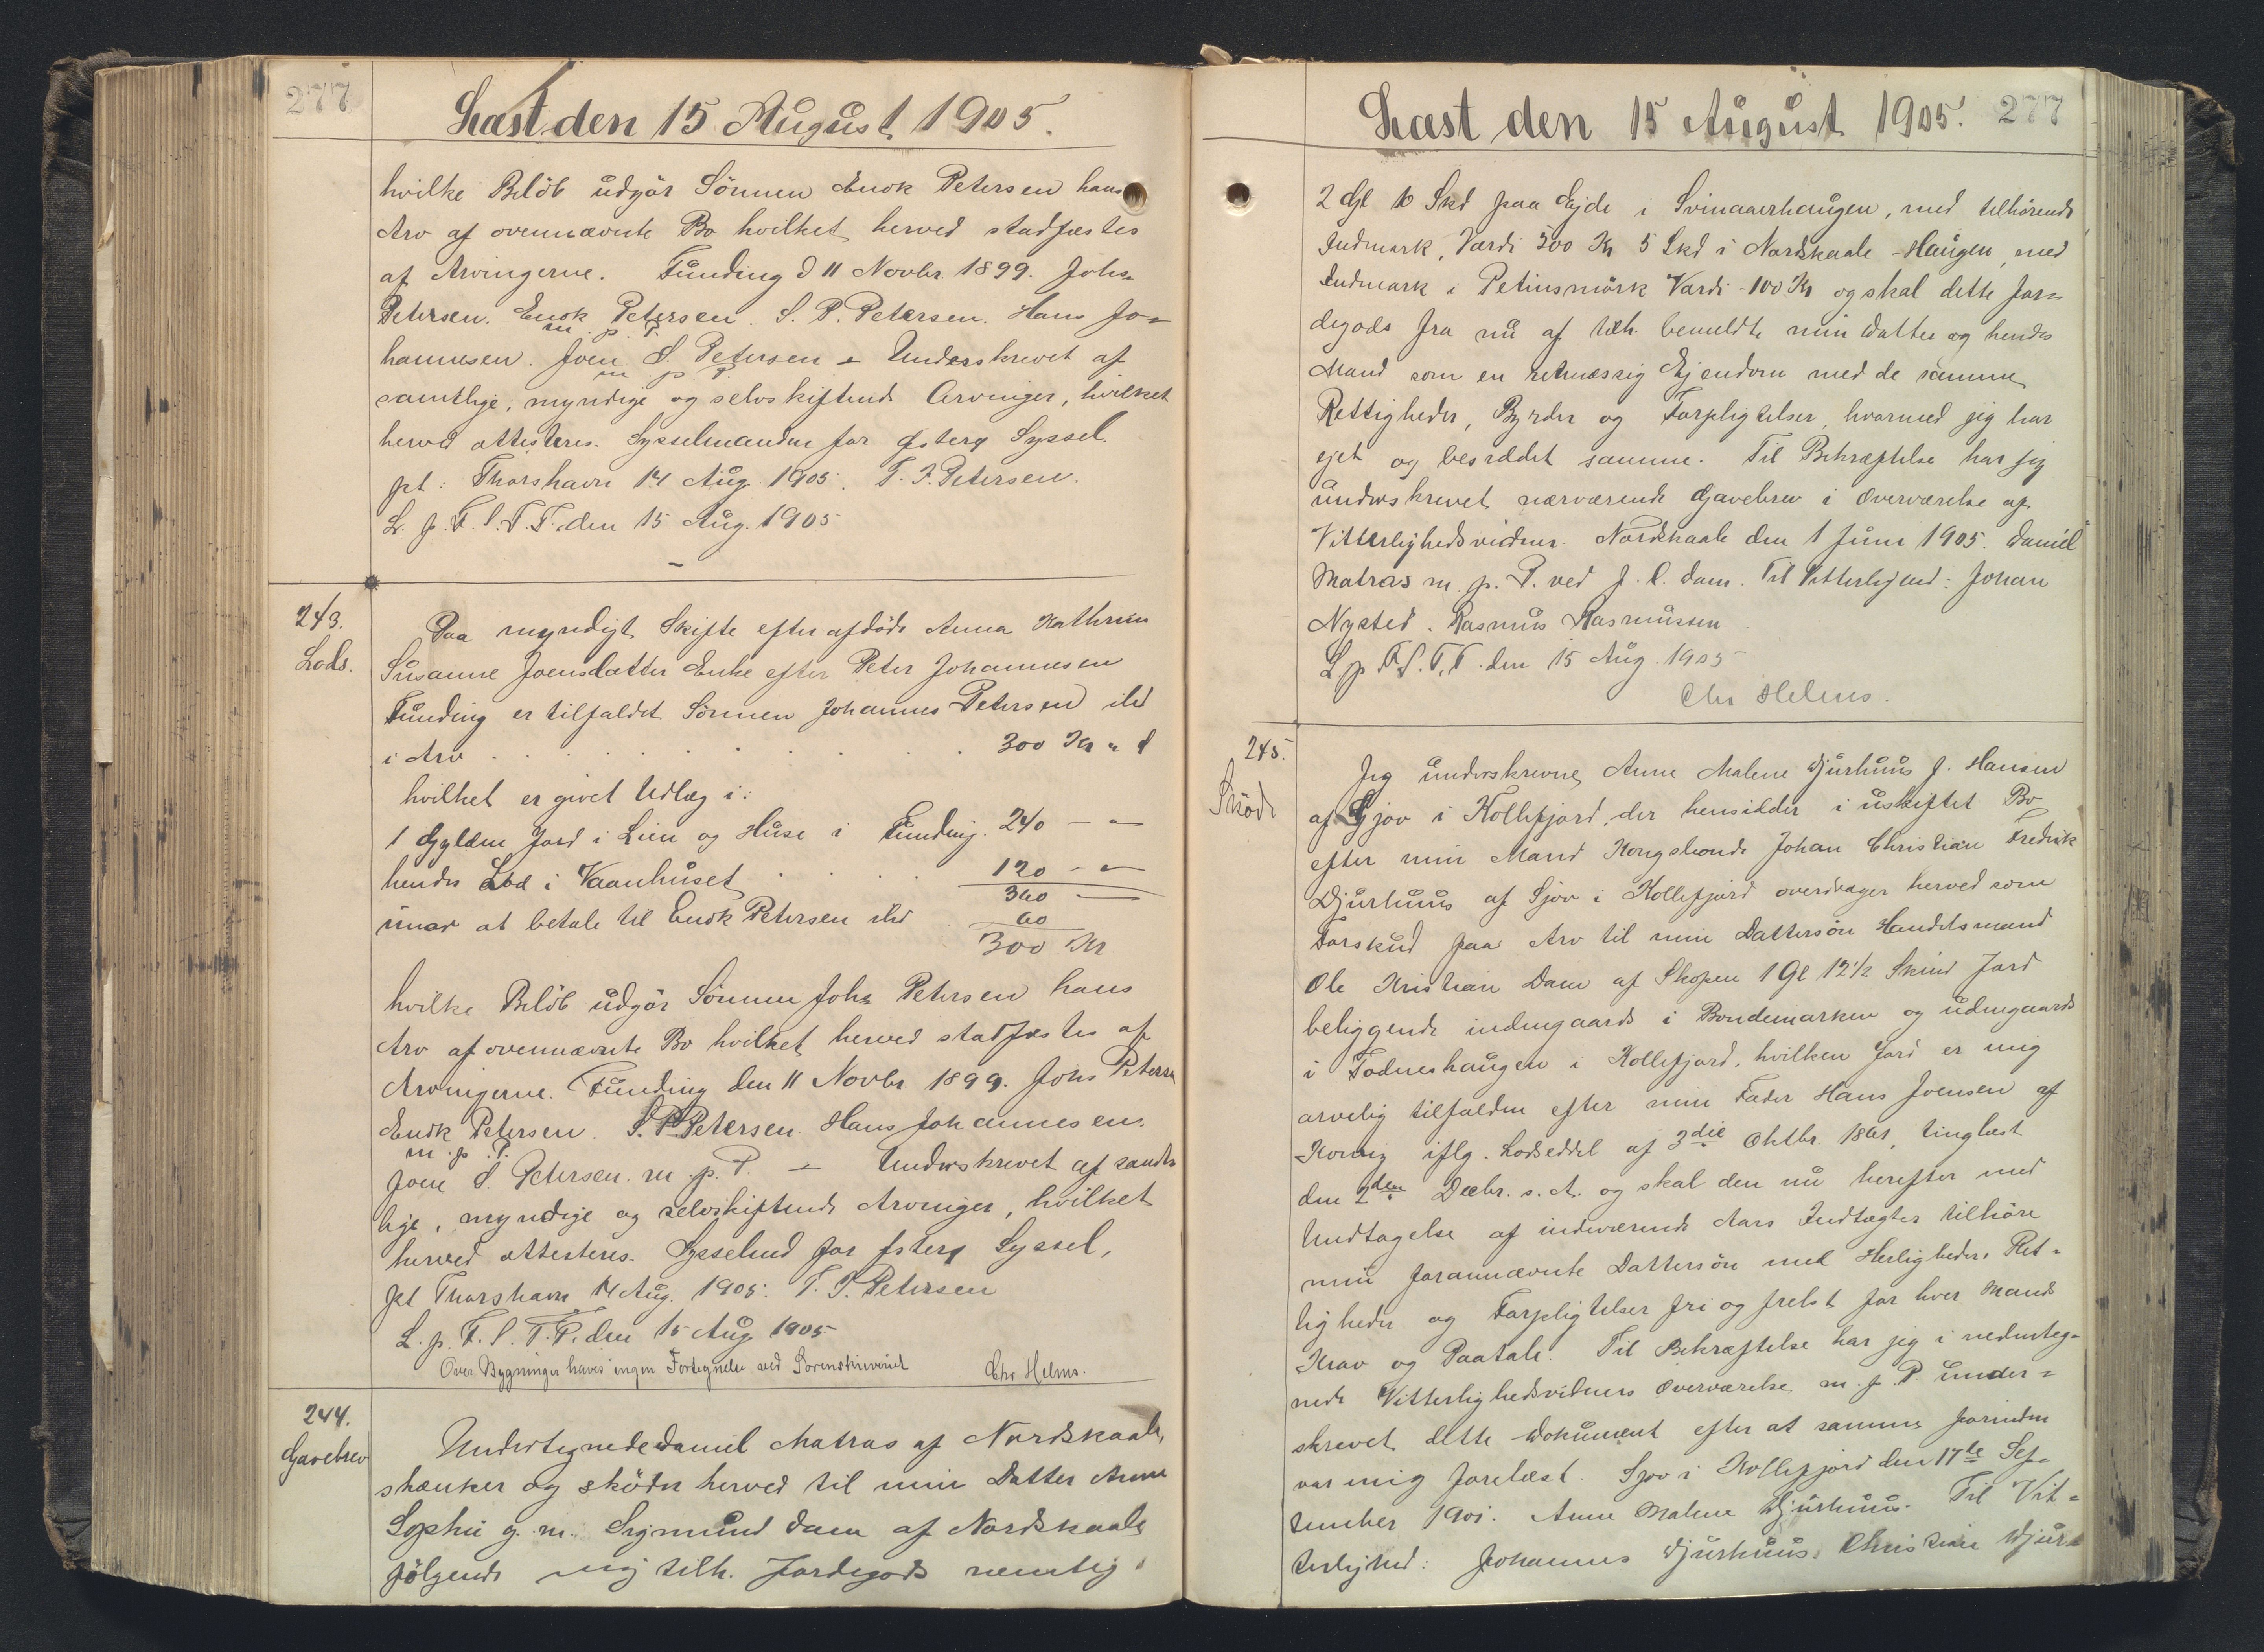 277
Læst den 15 August 1905.
hvilke Beløb udgør Sønnen Enok Petersen hans
Arv af ovennævnte Bo hvilket herved stadfæstes
af Arvingerne. Funding d 11 Novbr. 1899. Johs
Petersen. Enok Petersen. S. P. Petersen. Hans Jo=
m. p. P.
hannesen. Joen S. Petersen - Underskrevet af
m p P
samtlige, myndige og selvskiftende Arvinger, hvilket
herved attesteres. Sysselmanden for Østerø Syssel.
pt: Thorshavn 14 Aug. 1905. T. I. Petersen.
L. p. F. S. T. T. den 15 Aug. 1905
243.
Lods.
Paa myndigt Skifte efter afdøde Anna Kathrine
Susanne Joensdatter Enke efter Peter Johannesen
Funding er tilfaldet Sønnen Johannes Petersen ild
i Arv . . . . . . . . . 300 Kr " Ø
hvilket er givet Udlæg i:
1 Gylden Jord i Lien og Huse i Funding. 240 — "
hendes Lod i Vaanhuset . . . . 120 - "
360 —
imod at betale til Enok Petersen ild 60
300 Kr
hvilke Beløb udgør Sønnen Johs Petersen hans
Arv af ovennævnte Bo hvilket herved stadfæstes af
Arvingerne. Funding den 11 Novbr. 1899. Johs Petersen
Enok Petersen. S. P. Petersen. Hans Johannesen.
m. p. P.
Joen S. Petersen. m. p. P. - Underskrevet af samt
lige, myndige og selvskiftende Arvinger, hvilket
herved attesteres. Sysselmd for Østerø Syssel,
pt Thorshavn 14 Aug. 1905. T. I. Petersen
L. p. F. S. T. T. den 15 Aug 1905
Over Bygninger haves ingen Fortegnelse ved Sorenskriveriet Chr Helms.
244.
Gavebrev
Undertegnede Daniel Matras af Nordskaale,
skænker og skøder herved til min Datter Anne
Sophie g. m. Sigmund Dam af Nordskaale
følgende mig tilh. Jordegods nemlig:
Læst den 15 August 1905. 277
2 Gl 10 Skd paa Ejde i Svinaaerhaugen, med tilhørende
Indmark, Værdi 500 Kr 5 Skd i Nordskaale-Haugen, med
Indmark i Petinsmørk Værdi -100 Kr og skal dette Jor=
degods fra nu af tilh. bemeldte min Datter og hendes
Mand som en retmæssig Ejendom med de samme
Rettigheder, Byrder og Forpligtelser, hvormed jeg har
ejet og besiddet samme. Til Bekræftelse har jeg
underskrevet nærværende Gavebrev i Overværelse af
Vitterlighedsvidner. Nordskaale den 1 Juni 1905. Daniel
Matras m. p. P. ved J. C. Dam. Til Vitterlighed: Johan
Nysted. Rasmus Rasmussen
L. p. F. S. T. T. den 15 Aug. 1905
Chr Helms.
245.
Skøde
Jeg underskrevne, Anne Malene Djurhuus f. Hansen
af Sjov i Kollefjord, der hensidder i uskiftet Bo
efter min Mand Kongsbonde Johan Christian Fredrik
Djurhuus af Sjov i Kollefjord overdrager herved som
Forskud paa Arv til min Dattersøn Handelsmand
Ole Kristian Dam af Skopen 1 Gl 12 1/2 Skind Jord
beliggende indengaards i Bondemarken og udengaards
i Todneshaugen i Kollefjord, hvilken Jord er mig
arvelig tilfalden efter min Fader Hans Joensen af
iflg. Lodseddel af 3die Oktbr. 1861, tinglæst
den 2den Decbr. s. A. og skal den nu herefter med
Undtagelse af indeværende Aars Indtægter tilhøre
min forannævnte Dattersøn med Herligheder, Ret=
tigheder og Forpligtelser fri og frelst for hver Mands
Krav og Paatale. Til Bekræftelse har jeg i nedenteg=
nede Vitterlighedsvidners Overværelse m. f. P. under=
skrevet dette Dokument efter at samme forinden
var mig forelæst. Sjov i Kollefjord den 17de Sep=
tember 1901. Anne Malene Djurhuus. Til Vit=
terlighed: Johannes Djurhuus. Christine Djur=